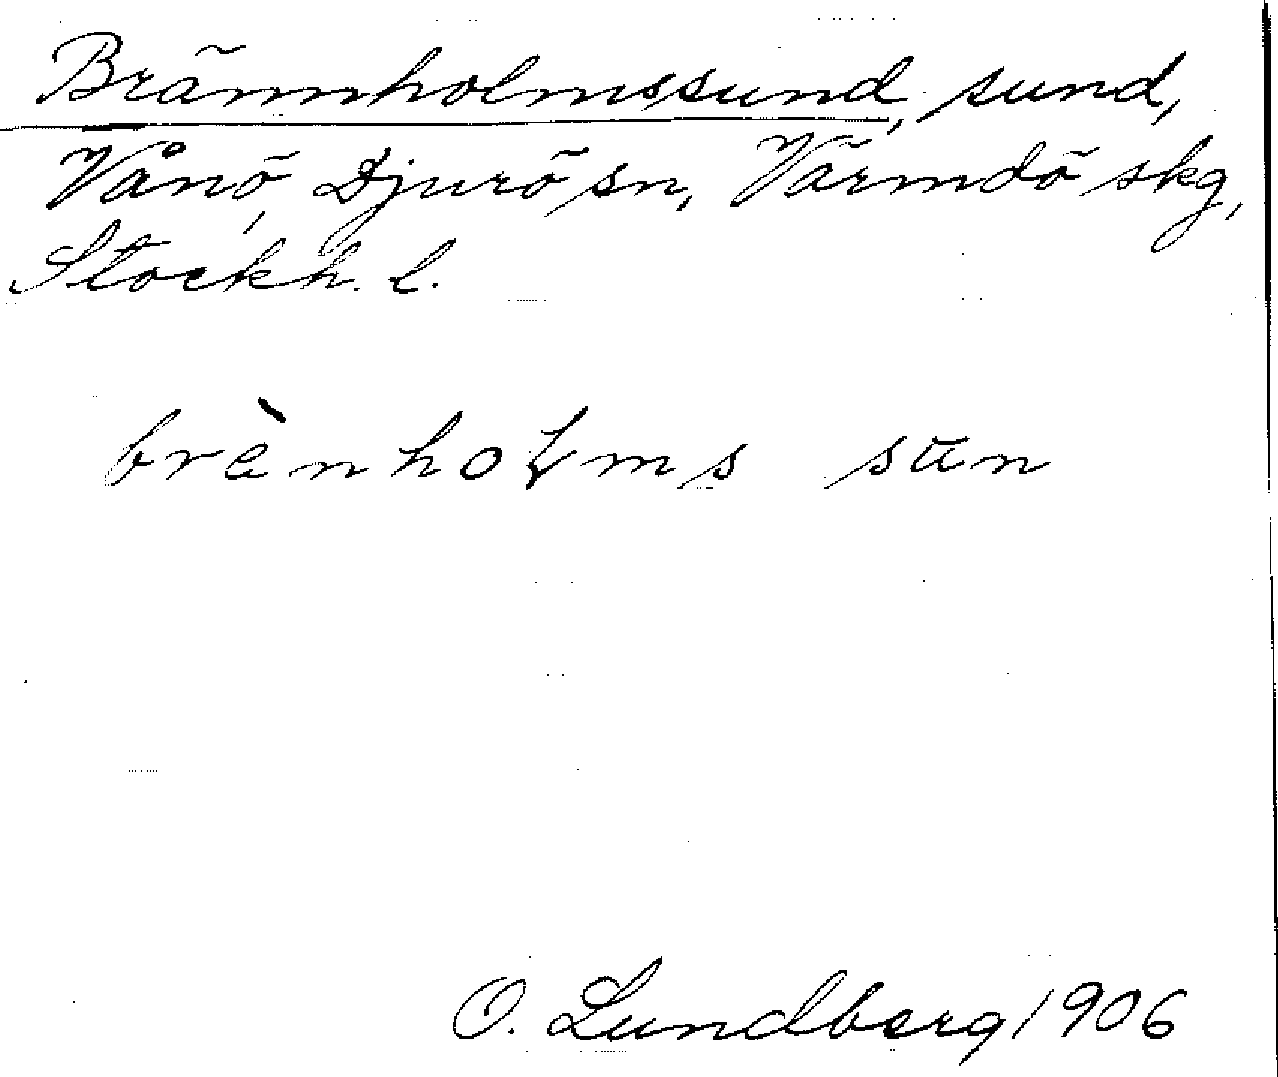 Brännholmssund, sund,
Vånö, Djurö sn, Värmdö skg,
Stockh. l.
brènholms sun
O. Lundberg 1906